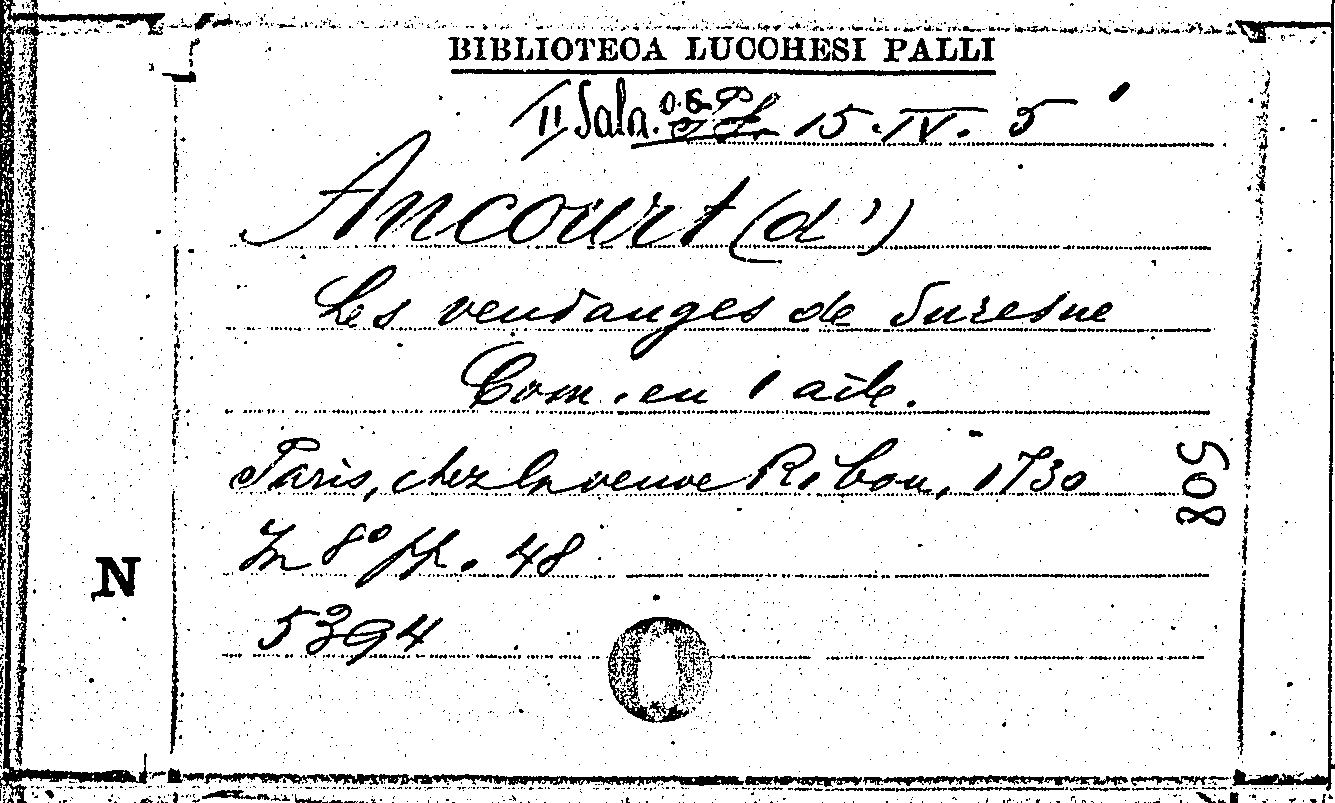 BIBLIOTECA LUCCHESI PALLI
II Sala. 15. IV. 5
Ancourt (d')
Les vendanges de Suresne
Com. en 1 acte.
Paris, chez la veuve Ribou, 1730
In 8° pp. 48
5394
508
N